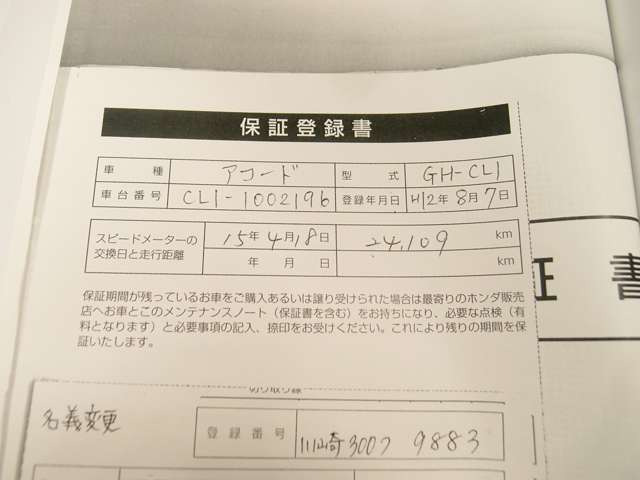 保証登録書
車種 アコード 型式 GH-CL1
車台番号 CL1-1002196 登録年月日 H12年8月7日
スピードメーターの 15年4月18日 24,109 km
交換日と走行距離 年 月 日 km
証 書
保証期間が残っているお車をご購入あるいは譲り受けられた場合は最寄りのホンダ販売
店へお車とこのメンテナンスノート（保証書を含む）をお持ちになり、必要な点検（有
料となります）と必要事項の記入、捺印をお受けください。これにより残りの期間を保
証いたします。
切り取り線
名義変更
登録番号 川崎300ワ 9883